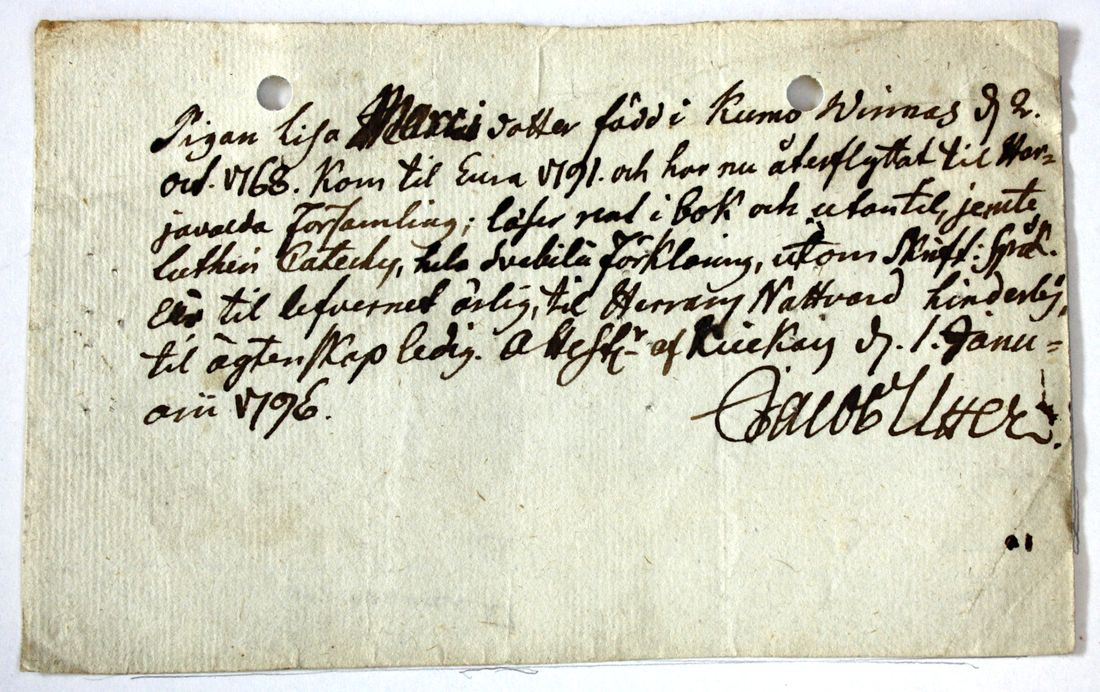 Pigan Lisa Matts dotter född i Kumo Winnas d 2.
oct. 1768. Kom til Eura 1791. och har nu återflyttat til Har-
javalda Församling; läser rent i bok och utantil, jemte
Lutheri Cateches, hela Svebilii Förklaring, utom Skrift: Språk.
Är til lefvernet ärlig, til Herrans Nattvard hinderlös,
til ägtenskap ledig. Attest:r af Kiukais d. 1. Janu-
arii 1796.
Jacob Utter.